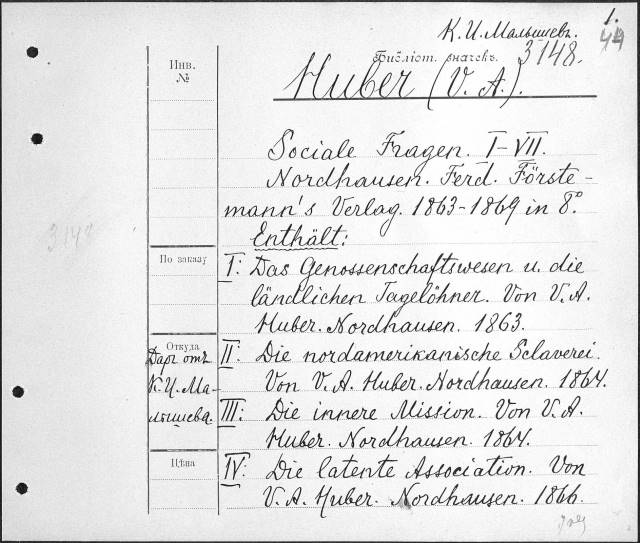 К. И. Малышевъ.
1.
44
Библіот. значекъ.
3148.
Инв.
№
Huber (V. A.).
Sociale Fragen. I-VII.
Nordhausen. Ferd. Förste-
mann's Verlag. 1863-1869 in 8°.
Enthält:
3148
По заказу
I: Das Genossenschaftswesen u. die
ländlichen Tagelöhner. Von V. A.
Huber. Nordhausen. 1863.
Откуда
Даръ отъ
К. И. Ма-
лышева.
II: Die nordamerikanische Sclaverei.
Von V. A. Huber. Nordhausen. 1864.
III: Die innere Mission. Von V. A.
Huber. Nordhausen. 1864.
Цѣна
IV: Die latente Association. Von
V. A. Huber. Nordhausen. 1866.